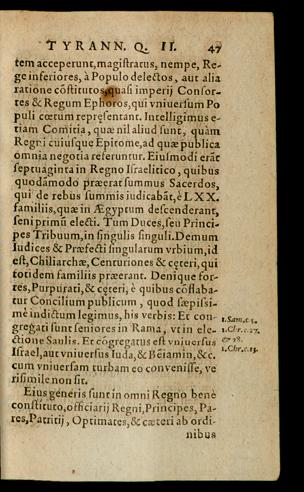 TYRANN. Q. II. 47
tem acceperunt, magistratus, nempe, Re-
ge inferiores, à Populo delectos, aut alia
ratione cõstitutos, quasi imperij Consor-
tes & Regum Ephoros, qui vniuersum Po
puli cœtum repręsentant. Intelligimus e-
tiam Comitia, quæ nil aliud sunt, quàm
Regni cuiusque Epitome, ad quæ publica
omnia negotia referuntur. Eiusmodi erãt
septuaginta in Regno Israelitico, quibus
quodãmodo præerat summus Sacerdos,
qui de rebus summis iudicabãt, è LXX.
familiis, quæ in Ægyptum descenderant,
seni primũ electi. Tum Duces, seu Princi-
pes Tribuum, in singulis singuli. Demum
Iudices & Præfecti singularum vrbium, id
est, Chiliarchæ, Centuriones & cęteri, qui
totidem familiis præerant. Denique for-
tes, Purpurati, & cęteri, è quibus cõflaba-
tur Concilium publicum, quod sæpissi-
mè indictum legimus, his verbis: Et con-
gregati sunt seniores in Rama, vt in ele-
1. Sam. c. 8.
ctione Saulis. Et cõgregatus est vniuersus
1. Chr. c. 27.
& 28.
Israel, aut vniuersus Iuda, & Bẽiamin, &c.
1. Chr. c. 13.
cum vniuersam turbam eo conuenisse, ve
risimile non sit.
Eius generis sunt in omni Regno benè
constituto, officiarij Regni, Principes, Pa-
res, Patritij, Optimates, & cæteri ab ordi-
nibus